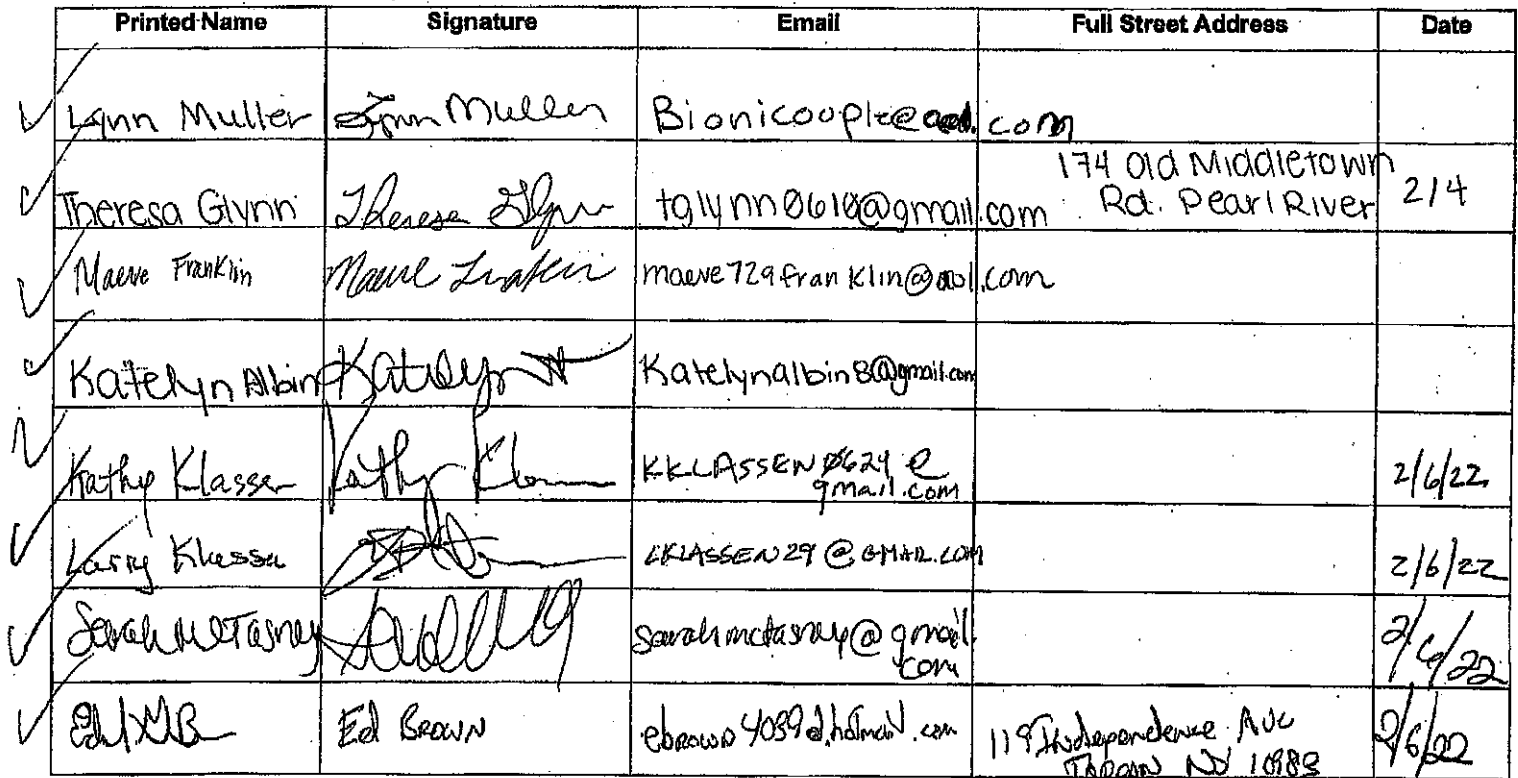 Printed Name Signature Email Full Street Address Date
Lynn Muller Lynn Muller .com
Theresa Glynn Theresa Glynn tglynn0610@gmail.com 174 Old Middletown
Rd. Pearl River 2/4
Maeve Franklin Maeve Franklin maeve729franklin@aol.com
Katelyn Albin Katelyn Katelynalbin8@gmail.com
Kathy Klassen Kathy KKLASSEN0624@
gmail.com 2/6/22
Larry Klassen LKLASSEN29@GMAIL.COM 2/6/22
Sarah McTasney sarahmctasney@gmail.
com 2/6/22
Ed Brown 119 Independence Ave 2/6/22
TAPPAN NY 10983